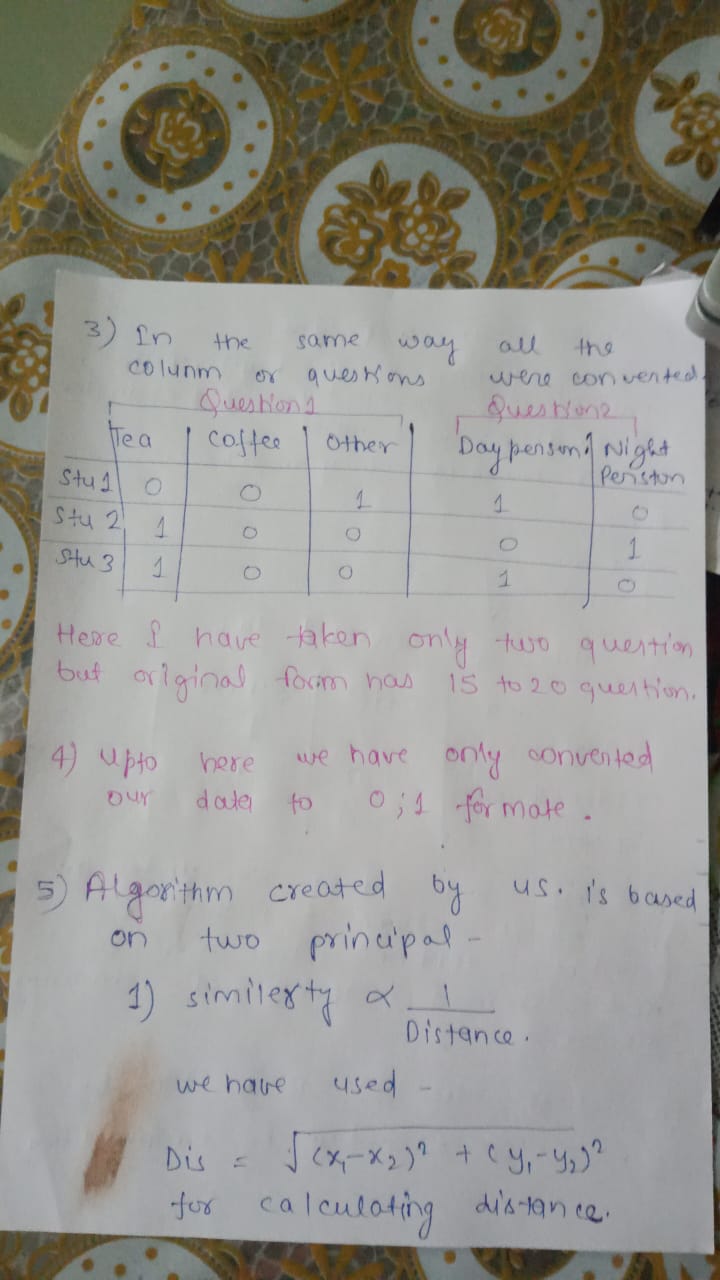 3) In the same way all the
colunm or questions were converted.
Question 1 Question 2
Tea Coffee Other Day person Night
Periston
Stu 1 0 0 1 1 0
Stu 2 1 0 0 0 1
Stu 3 1 0 0 1 0
Here I have taken only two question
but original form has 15 to 20 question.
4) upto here we have only converted
our data to 0;1 formate.
5) Algorithm created by us. is based
on two principal -
1) similerty ∝ 1
Distance.
we have used -
Dis = √(x₁-x₂)² + (y₁-y₂)²
for calculating distance.